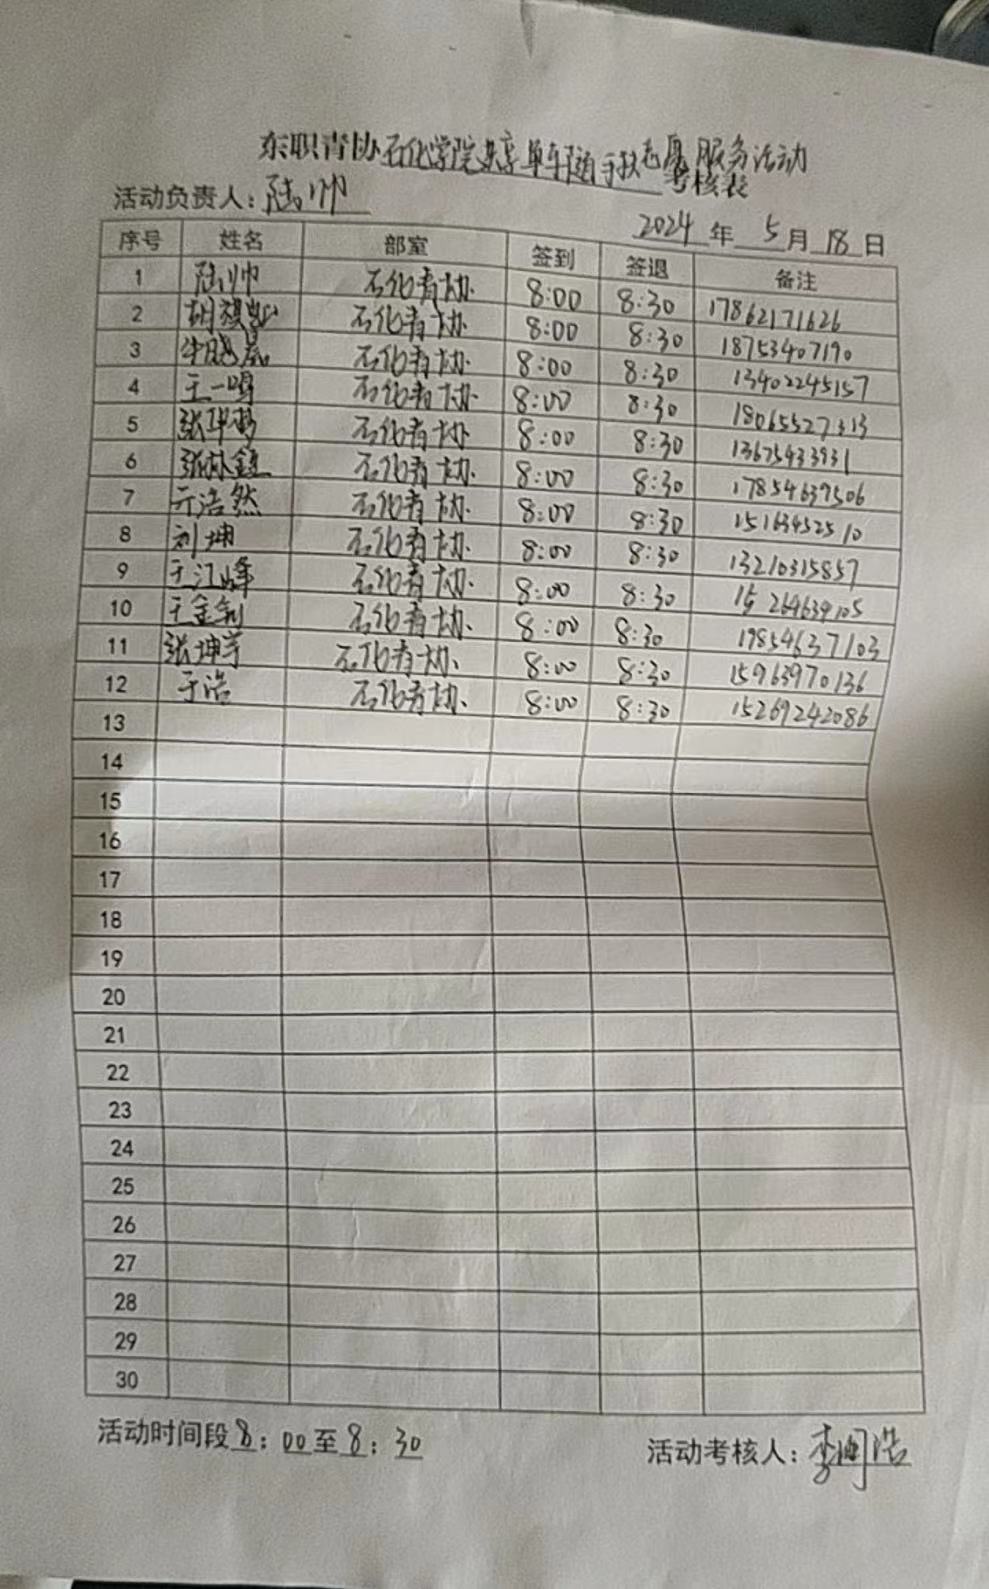 东职青协石化学院共享单车随手扶志愿服务活动
考核表
活动负责人：陆帅
2024年5月18日
序号 姓名 部室 签到 签退 备注
1 陆帅 石化青协 8:00 8:30 17862171626
2 胡 石化青协 8:00 8:30 18753407190
3 牛晓磊 石化青协 8:00 8:30 13402245157
4 王一鸣 石化青协 8:00 8:30 18065527313
5 张华 石化青协 8:00 8:30 13675433931
6 张林鑫 石化青协 8:00 8:30 17854639506
7 亓浩然 石化青协 8:00 8:30 15163452510
8 刘坤 石化青协 8:00 8:30 13210315857
9 王江峰 石化青协 8:00 8:30 15264634105
10 王金钊 石化青协 8:00 8:30 19854637103
11 张坤宇 石化青协 8:00 8:30 15963970136
12 于浩 石化青协 8:00 8:30 15269242086
13
14
15
16
17
18
19
20
21
22
23
24
25
26
27
28
29
30
活动时间段8：00至8：30 活动考核人：李闻浩